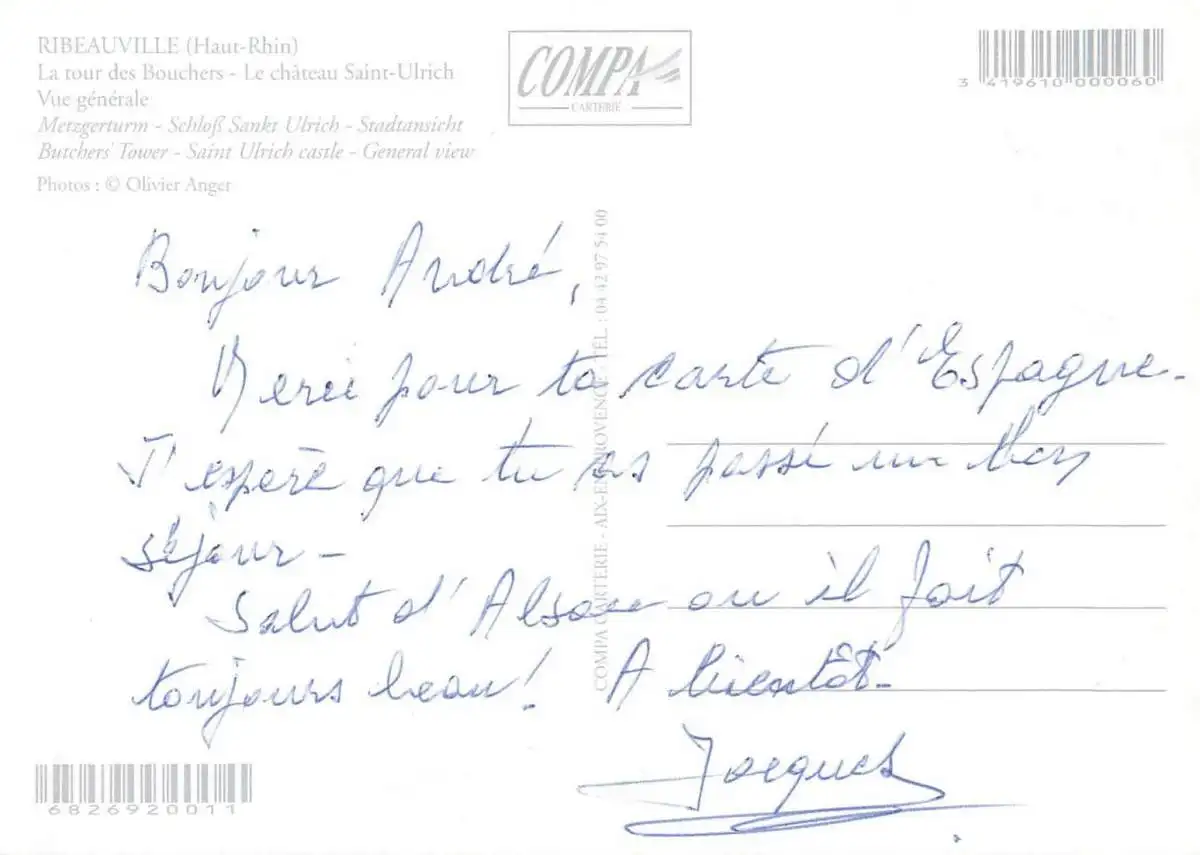 RIBEAUVILLE (Haut-Rhin)
La tour des Bouchers - Le château Saint-Ulrich
Vue générale
Metzgerturm - Schloß Sankt Ulrich - Stadtansicht
Butchers' Tower - Saint Ulrich castle - General view
Photos : © Olivier Anger
COMPA
CARTERIE
3 419610 000060
COMPA CARTERIE - AIX-EN-PROVENCE - TEL. : 04 42 97 54 00
Bonjour André,
Merci pour ta carte d'Espagne.
J'espère que tu as passé un bon
séjour -
Salut d'Alsace ou il fait
toujours beau! A bientôt.
Jacques
6826920011